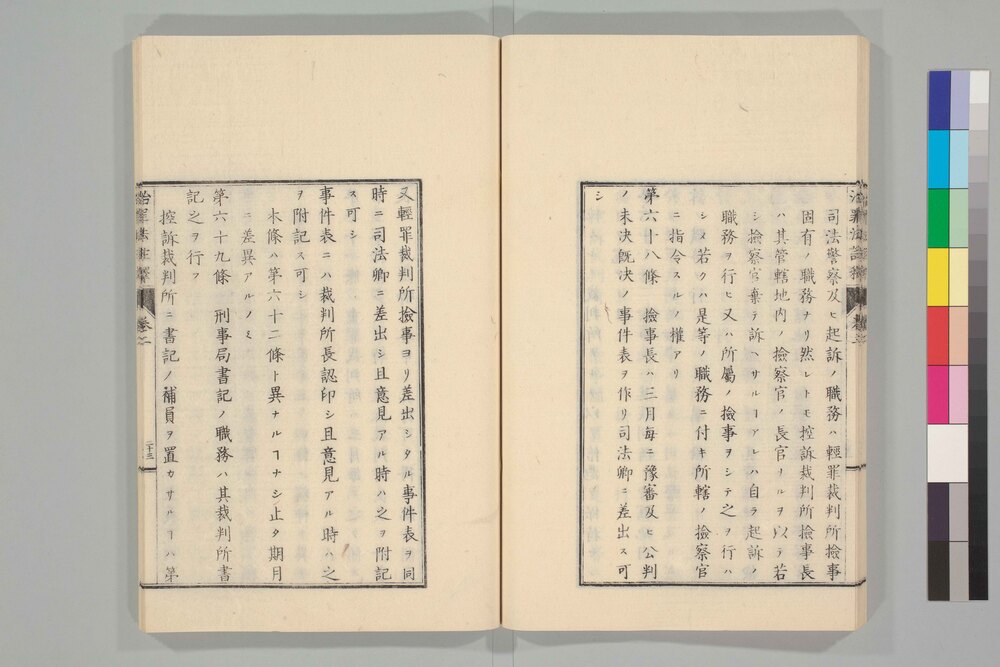 司法警察及ヒ起訴ノ職務ハ輕罪裁判所撿事
固有ノ職務ナリ然レトモ控訴裁判所撿事長
ハ其管轄地内ノ撿察官ノ長官タルヲ以テ若
シ撿察官棄テ訴ヘサルヿアレハ自ラ起訴ノ
職務ヲ行ヒ又ハ所屬ノ撿事ヲシテ之ヲ行ハ
シメ若クハ是等ノ職務ニ付キ所轄ノ撿察官
ニ指令スルノ權アリ
第六十八條 撿事長ハ三月毎ニ豫審及ヒ公判
ノ未决既决ノ事件表ヲ作リ司法卿ニ差出ス可
シ
又輕罪裁判所撿事ヨリ差出シタル事件表ヲ同
時ニ司法卿ニ差出シ且意見アル時ハ之ヲ附記
ス可シ
事件表ニハ裁判所長認印シ且意見アル時ハ之
ヲ附記ス可シ
本條ハ第六十二條ト異ナルヿナシ止タ期月
ニ差異アルノミ
第六十九條 刑事局書記ノ職務ハ其裁判所書
記之ヲ行フ
控訴裁判所ニ書記ノ補員ヲ置カサルヿハ第
二十三